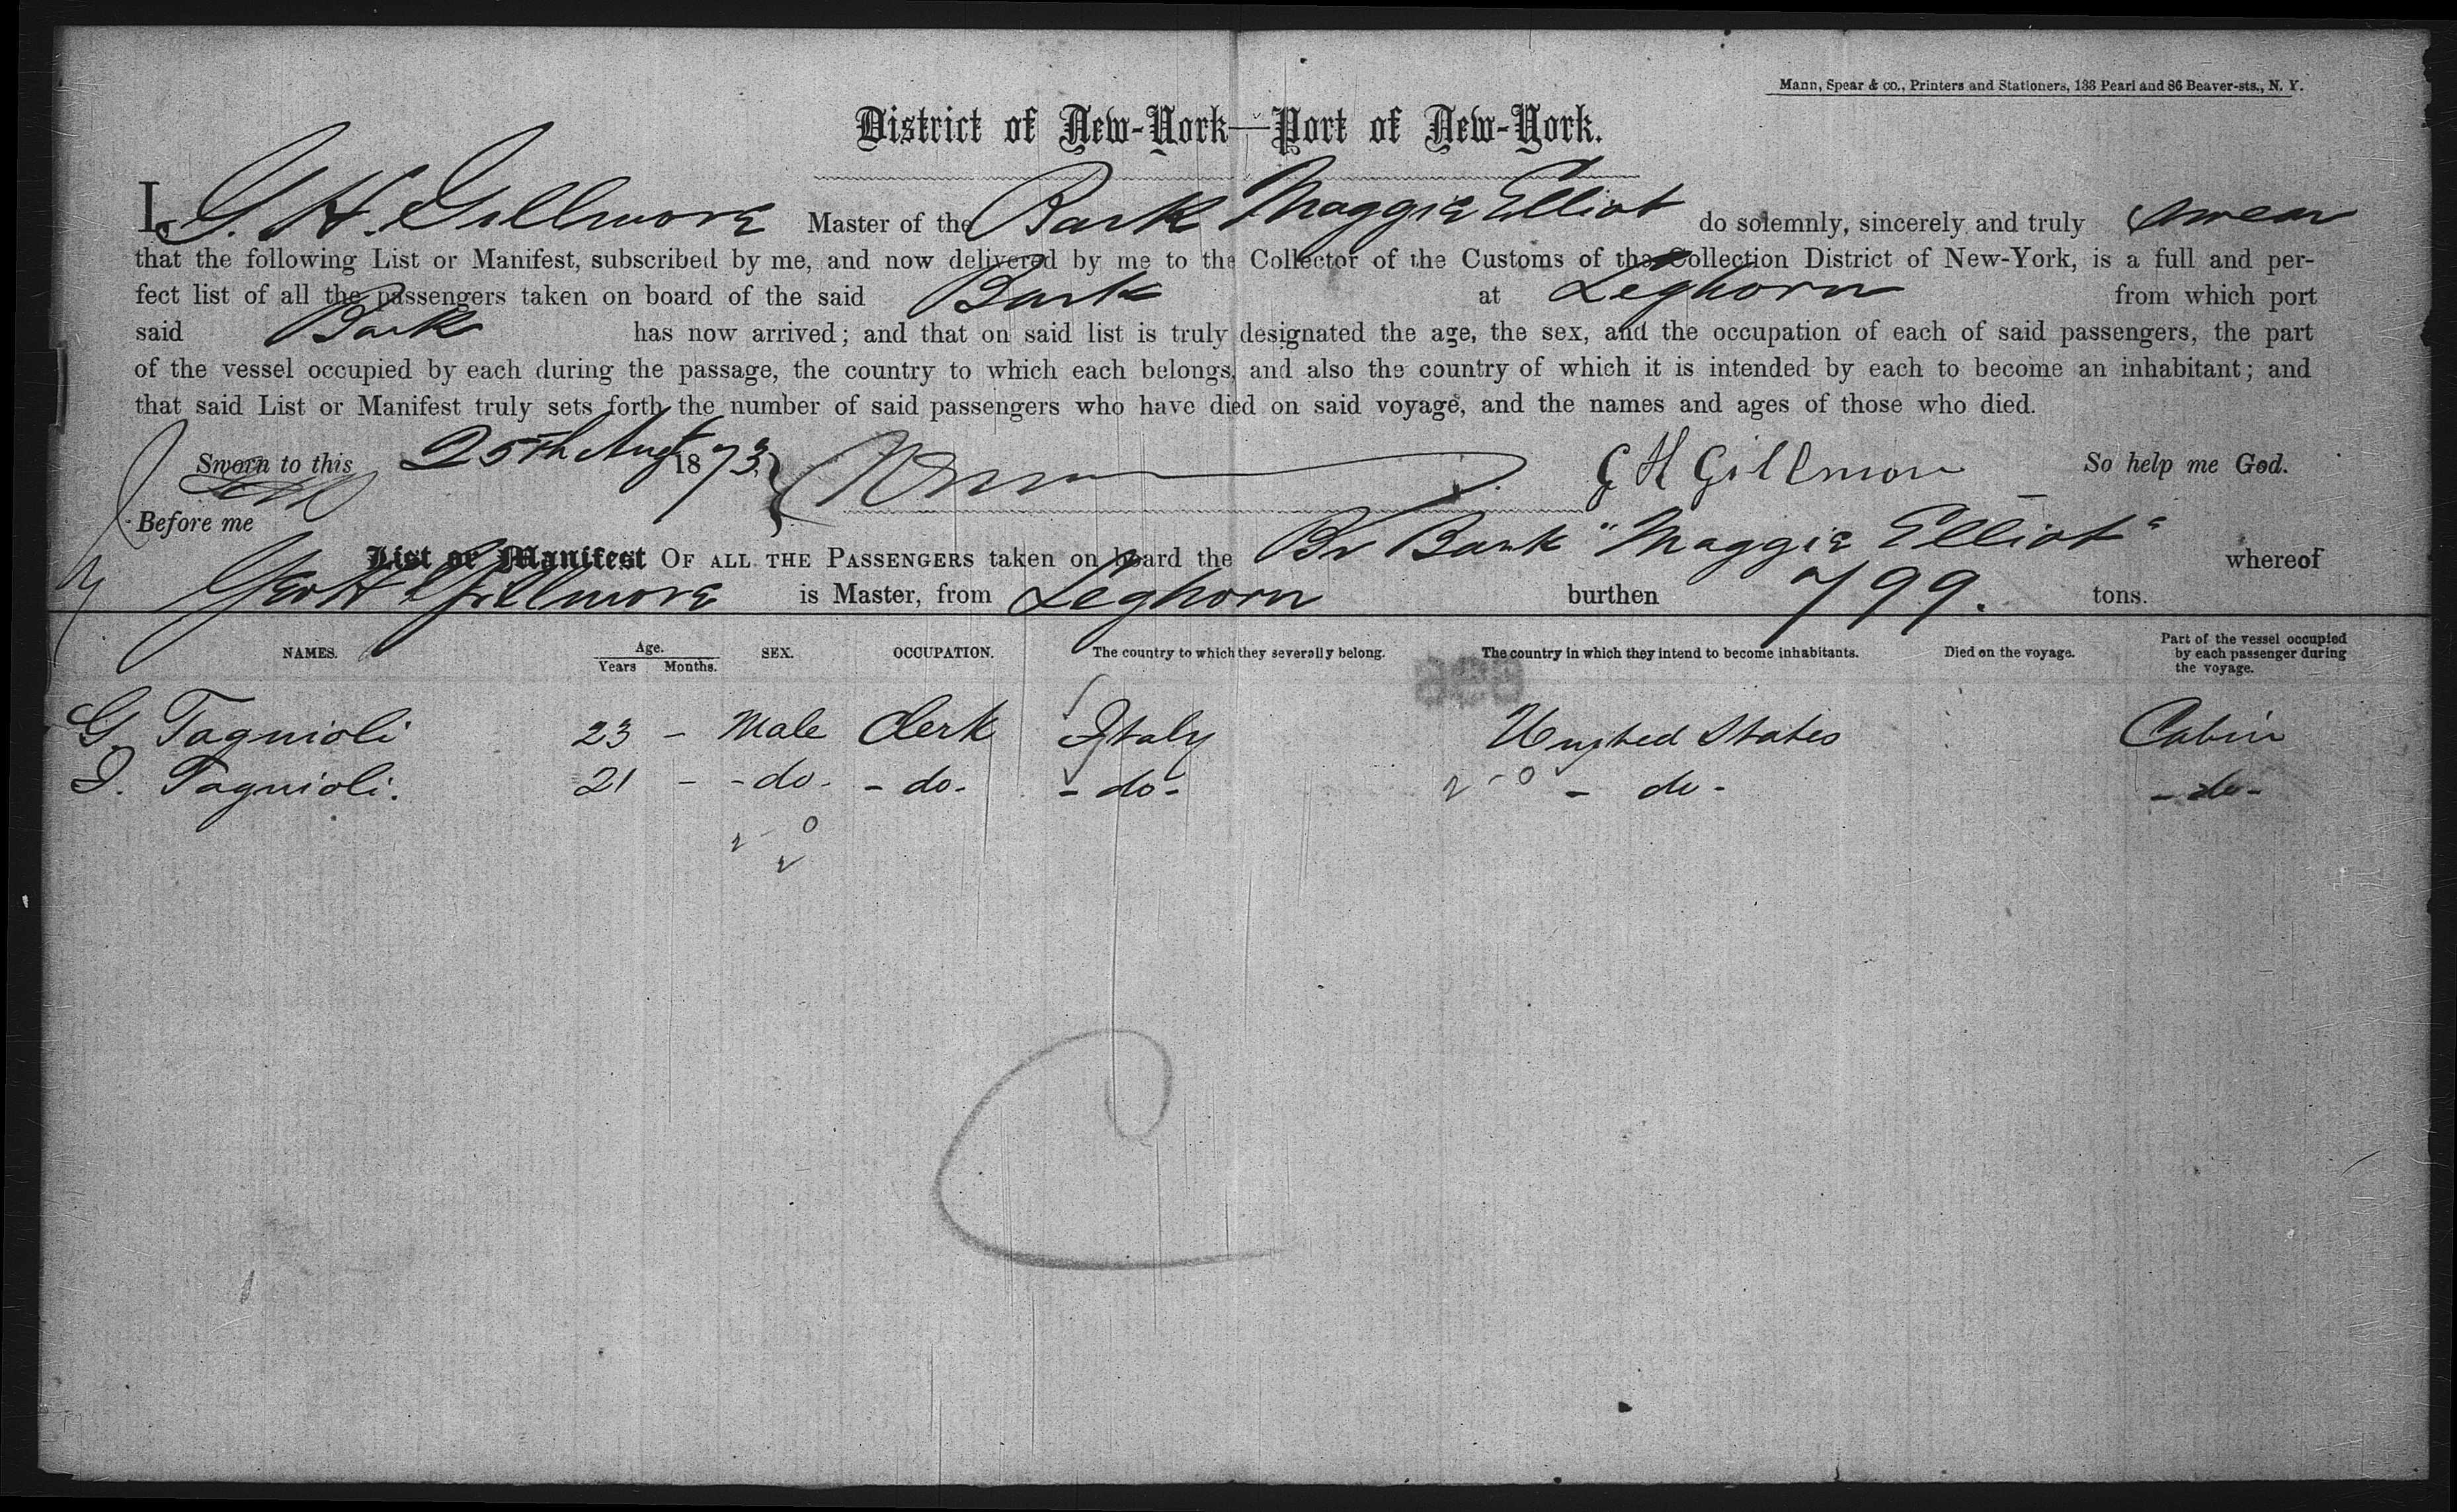 Mann, Spear & co., Printers and Stationers, 133 Pearl and 86 Beaver-sts., N. Y.
District of New-York—Port of New-York.
I, G. H. Gillmore Master of the Bark Maggie Elliot do solemnly, sincerely and truly swear
that the following List or Manifest, subscribed by me, and now delivered by me to the Collector of the Customs of the Collection District of New-York, is a full and per-
fect list of all the passengers taken on board of the said Bark at Leghorn from which port
said Bark has now arrived; and that on said list is truly designated the age, the sex, and the occupation of each of said passengers, the part
of the vessel occupied by each during the passage, the country to which each belongs, and also the country of which it is intended by each to become an inhabitant; and
that said List or Manifest truly sets forth the number of said passengers who have died on said voyage, and the names and ages of those who died.
Sworn to this 25th Augt 1873. G H Gillmore So help me God.
Before me
List or Manifest OF ALL THE PASSENGERS taken on board the Br Bark "Maggie Elliot" whereof
Geo H Gillmore is Master, from Leghorn burthen 799. tons.
NAMES. Age. Years Months. SEX. OCCUPATION. The country to which they severally belong. The country in which they intend to become inhabitants. Died on the voyage. Part of the vessel occupied by each passenger during the voyage.
G Tagnioli 23 - Male Clerk Italy United States Cabin
I. Tagnioli. 21 - - do - - do - - do - - do - - do -